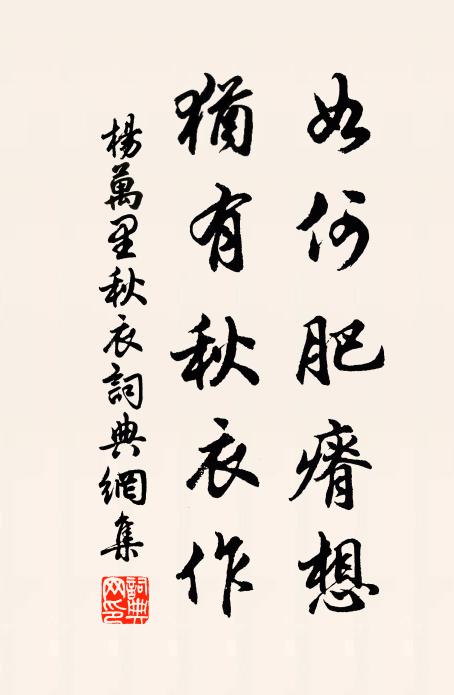 如何肥瘠想
猶有秋衣作
楊萬里秋衣詞典網集
詞典網印